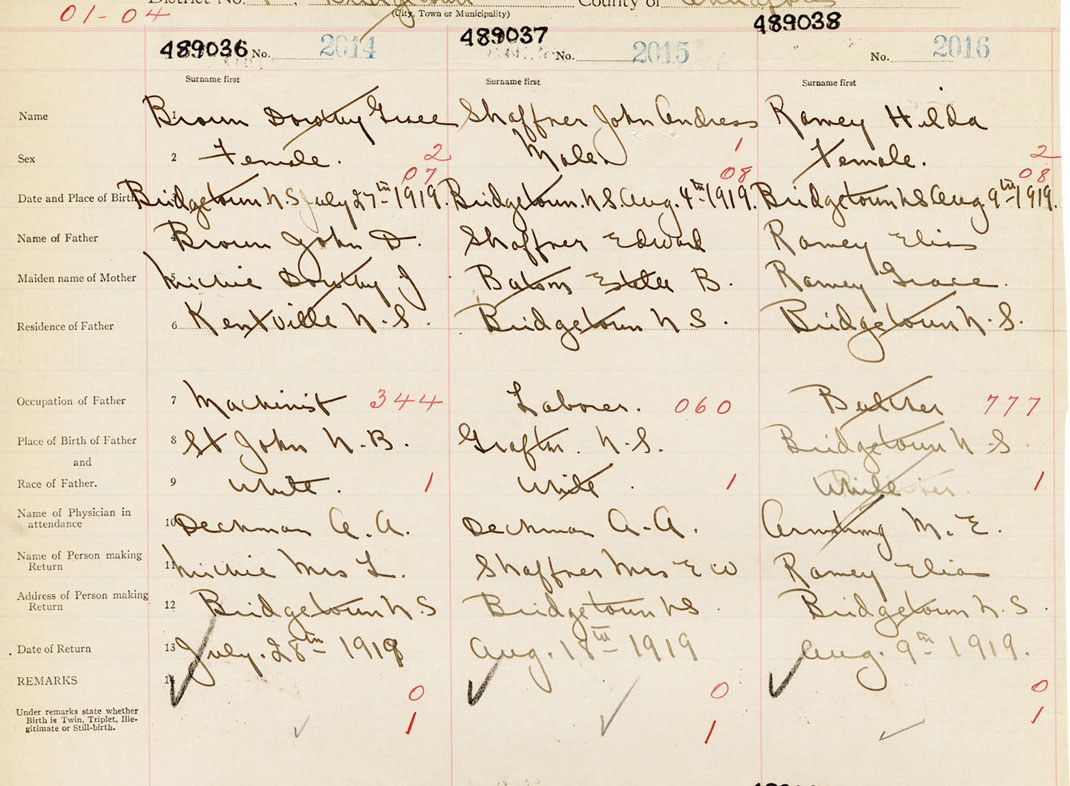 District No. 1, Bridgetown County of Annapolis
01-04 (City, Town or Municipality)
489036 No. 2014 489037 No. 2015 489038 No. 2016
Surname first Surname first Surname first
Name 1 Brown Dorothy Grace Shaffner John Andress Ramey Hilda
Sex 2 Female. 2 Male. 1 Female. 2
07 08 08
Date and Place of Birth Bridgetown N.S July 27th 1919. Bridgetown. N.S Aug. 4th 1919. Bridgetown NS Aug 9th 1919.
Name of Father 4 Brown John D. Shaffner Edward Ramey Elias
Maiden name of Mother 5 Michie Dorothy J Estella B. Ramey Grace.
Residence of Father 6 Kentville N.S. Bridgetown N S. Bridgetown N.S.
Occupation of Father 7 Machinist 344 Laborer. 060 Butcher 777
Place of Birth of Father 8 St John N.B. Grafton. N.S. Bridgetown N S
and
Race of Father. 9 White. 1 White. 1 White 1
Name of Physician in
attendance 10 Deckman A.A. Deckman A.A. Armstrong M. E.
Name of Person making
Return 11 Michie Mrs L. Shaffner Mrs E W Ramey Elias
Address of Person making
Return 12 Bridgetown N S Bridgetown NS. Bridgetown N.S.
Date of Return 13 July. 28th 1919 Aug. 18th 1919 Aug. 9th 1919.
REMARKS 14
0 0 0
Under remarks state whether
Birth is Twin, Triplet, Ille-
gitimate or Still-birth. 1 1 1